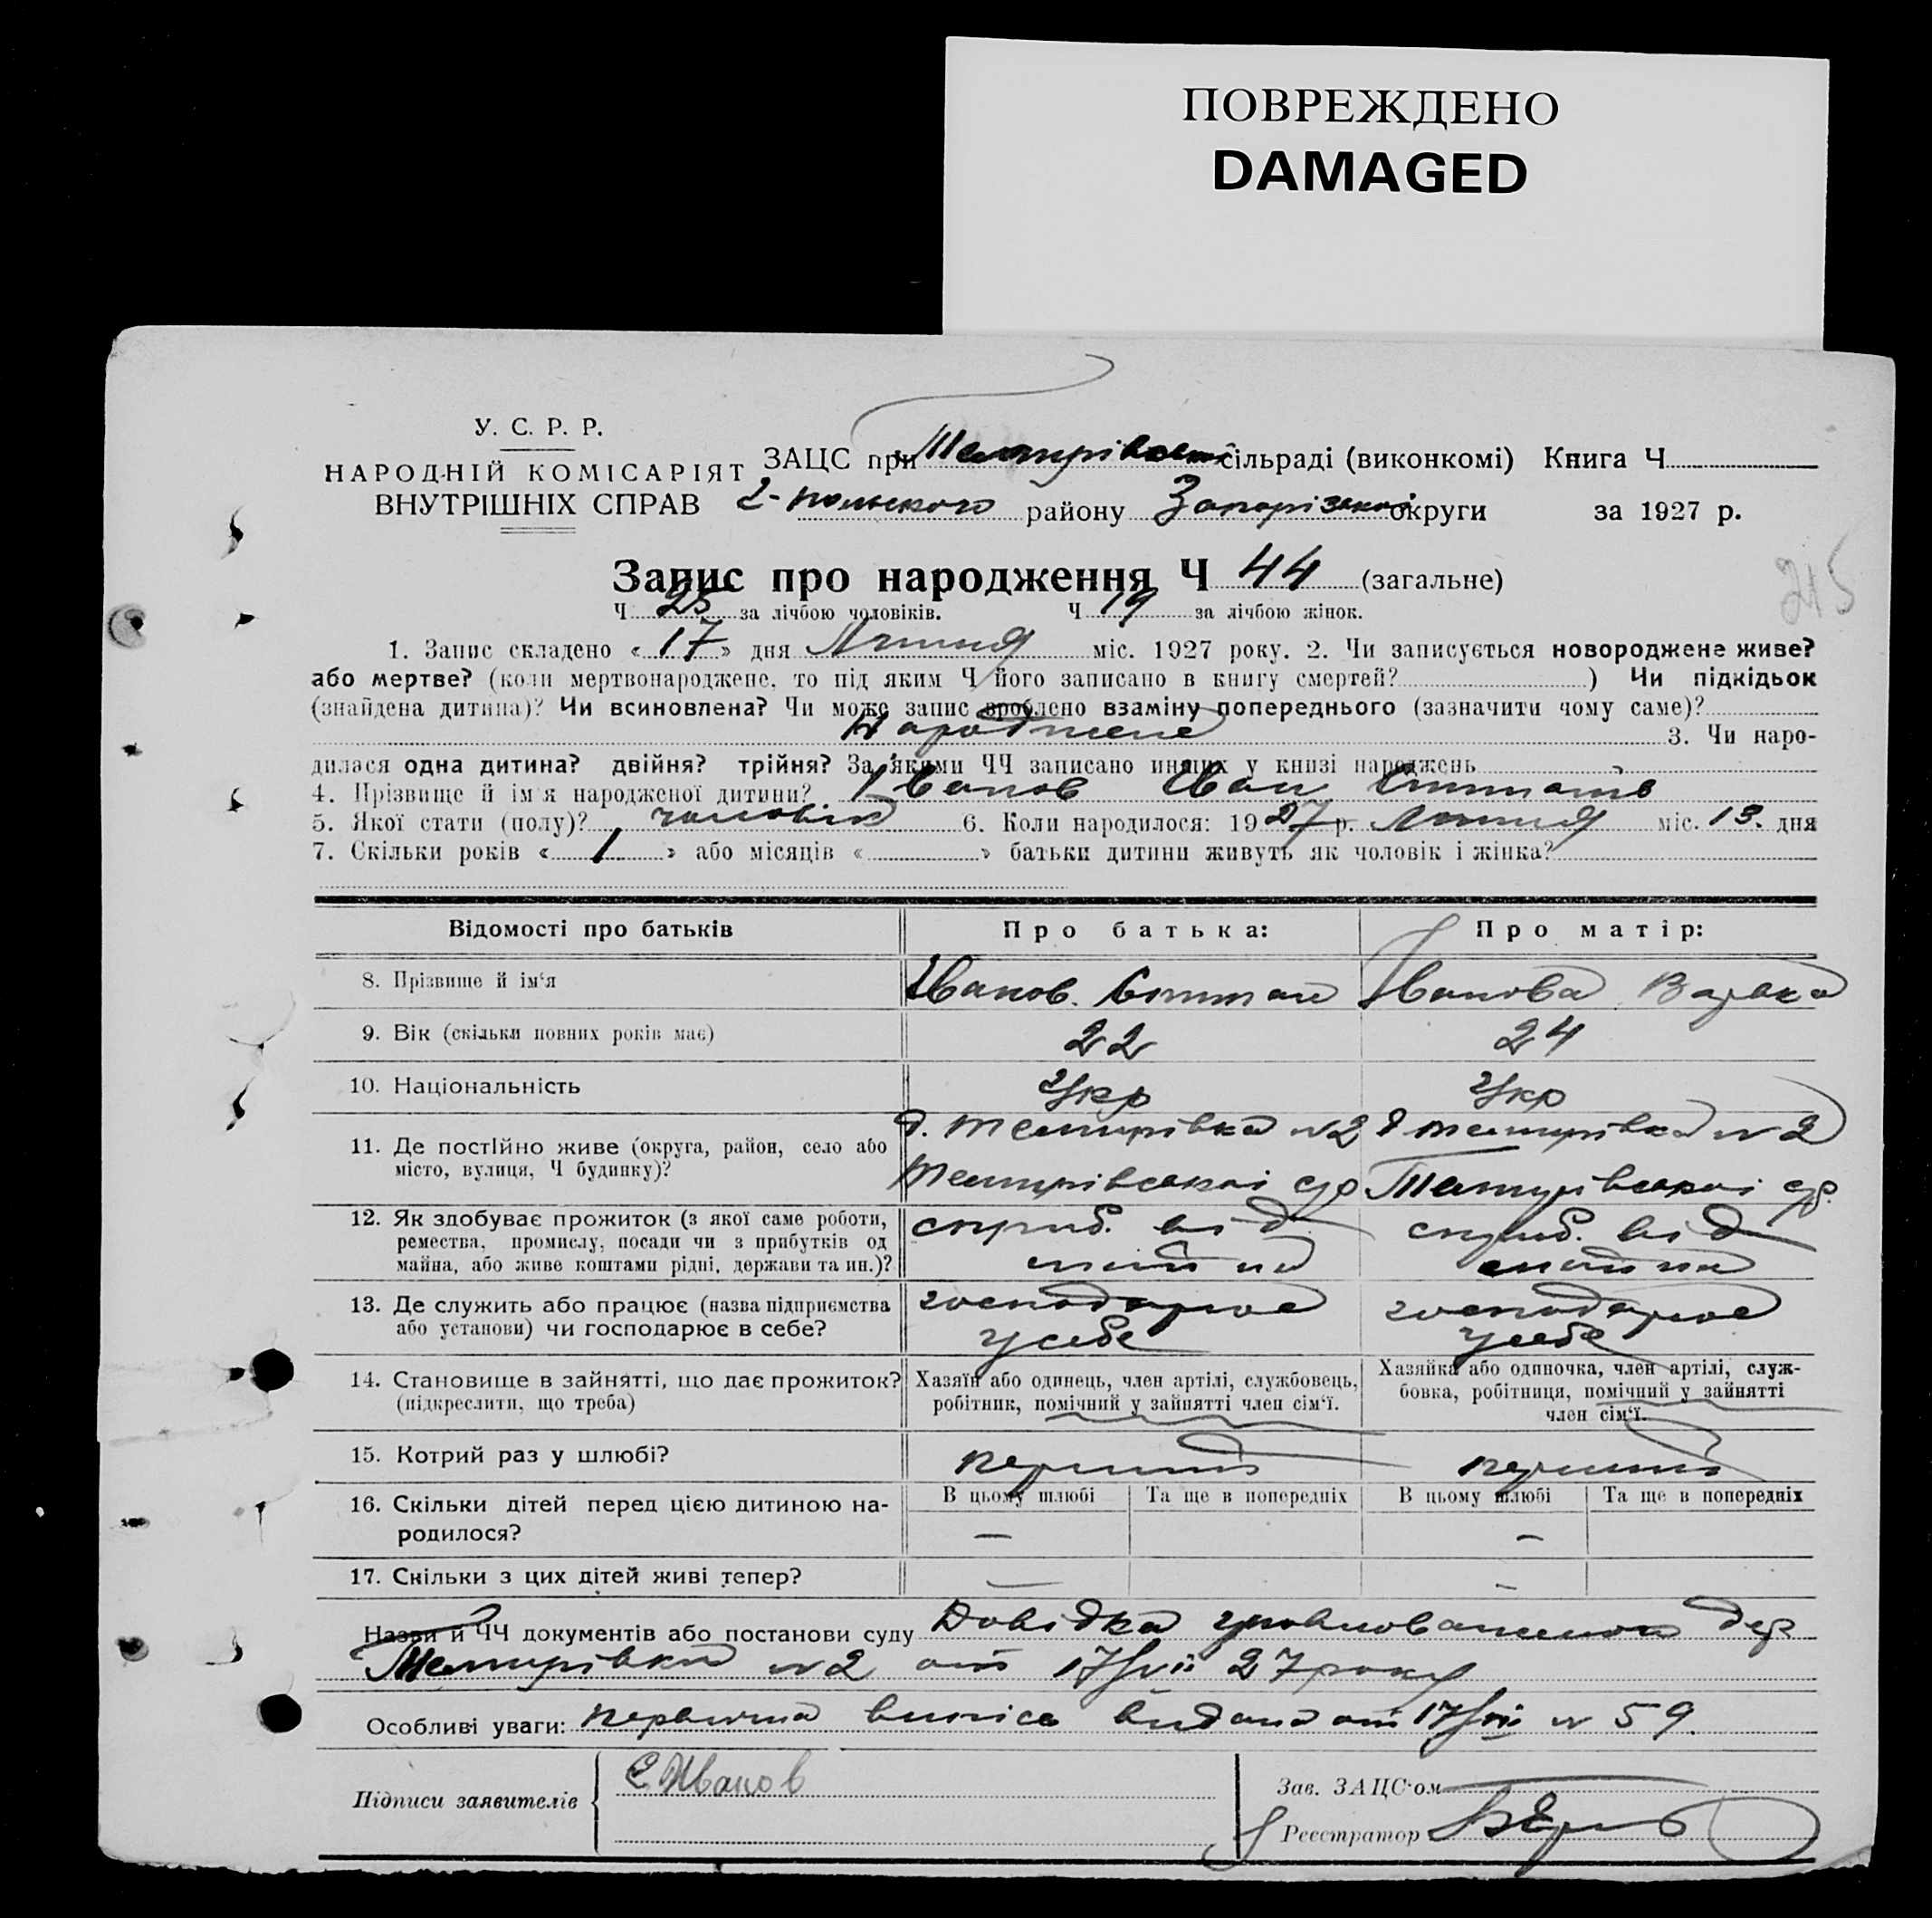 ПОВРЕЖДЕНО
DAMAGED
У. С. Р. Р.
НАРОДНІЙ КОМІСАРІЯТ
ВНУТРІШНІХ СПРАВ
ЗАЦС при Темирівськ сільраді (виконкомі) Книга Ч
району Запорізької округи за 1927 р.
215
Запис про народження Ч 44 (загальне)
Ч 25 за лічбою чоловіків. Ч 19 за лічбою жінок.
1. Запис складено « 17 » дня Липня міс. 1927 року. 2. Чи записується новороджене живе?
або мертве? (коли мертвонароджене, то під яким Ч його записано в книгу смертей? ) Чи підкідьок
(знайдена дитина)? Чи всиновлена? Чи може запис зроблено взаміну попереднього (зазначити чому саме)?
Народжене 3. Чи наро-
дилася одна дитина? двійня? трійня? За якими ЧЧ записано инших у книзі народжень
4. Прізвище й ім'я народженої дитини? Іванов Іван
5. Якої стати (полу)? чоловік 6. Коли народилося: 1927 р. Липня міс. 13. дня
7. Скільки років « 1 » або місяців « » батьки дитини живуть як чоловік і жінка?
Відомості про батьків Про батька: Про матір:
8. Прізвище й ім'я Іванов Іванова Варвара
9. Вік (скільки повних років має) 22 24
10. Національність Укр Укр
11. Де постійно живе (округа, район, село або місто, вулиця, Ч будинку)? д. Темирівка №2 д Темирівка №2
Темирівської с/р Темирівської с/р.
12. Як здобуває прожиток (з якої саме роботи, ремества, промислу, посади чи з прибутків од майна, або живе коштами рідні, держави та ин.)? від від
майна майна
13. Де служить або працює (назва підприємства або установи) чи господарює в себе? господарює господарює
у себе у себе
14. Становище в зайнятті, що дає прожиток? (підкреслити, що треба)
Хазяїн або одинець, член артілі, службовець, робітник, помічний у зайнятті член сім'ї.
Хазяйка або одиночка, член артілі, служ-
бовка, робітниця, помічний у зайнятті
член сім'ї.
15. Котрий раз у шлюбі? перший перший
16. Скільки дітей перед цією дитиною на-
родилося?
В цьому шлюбі Та ще в попередніх В цьому шлюбі Та ще в попередніх
— —
17. Скільки з цих дітей живі тепер? — —
Назви й ЧЧ документів або постанови суду Довідка уповноваженого дер
Темирівки №2 від 17/VII 27 року
Особливі уваги: первична випись видана 17/VII № 59.
Підписи заявителів Є. Іванов
Зав. ЗАЦС'ом
Реєстратор